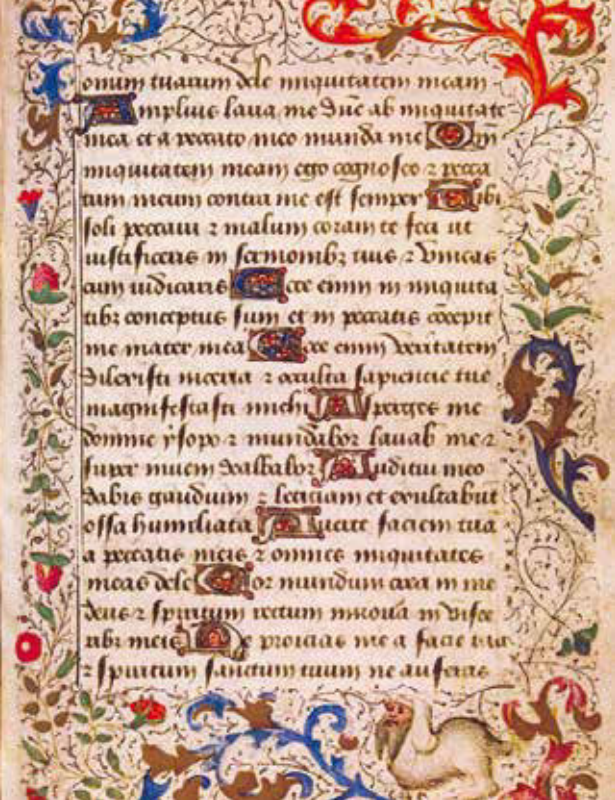 onum tuarum dele iniquitatem meam
Amplius laua me Duc ab iniquitate
mea et a peccato meo munda me Qm
iniquitatem meam ego cognosco ⁊ pecca
tum meum contra me est semper Tibi
soli peccaui ⁊ malum coram te feci ut
iustificeris in sermonibꝫ tuis ⁊ vincas
cum iudicaris Ecce enim in iniquita
tibꝫ conceptus sum et in peccatis cōcepit
me mater mea Ecce enim veritatem
dilexisti incerta ⁊ occulta sapiencie tue
magnifestasti michi Asperges me
domine ysopo ⁊ mundabor lauab me ⁊
super niuem dealbabor Auditui meo
dabis gaudium ⁊ leticiam et exultabūt
ossa humiliata Auerte faciem tua
a peccatis meis ⁊ omnes iniquitates
meas dele Cor mundum crea in me
deus ⁊ spiritum rectum innoua in visce
ribꝫ meis Ne proicias me a facie tua
⁊ spiritum sanctum tuum ne auferas